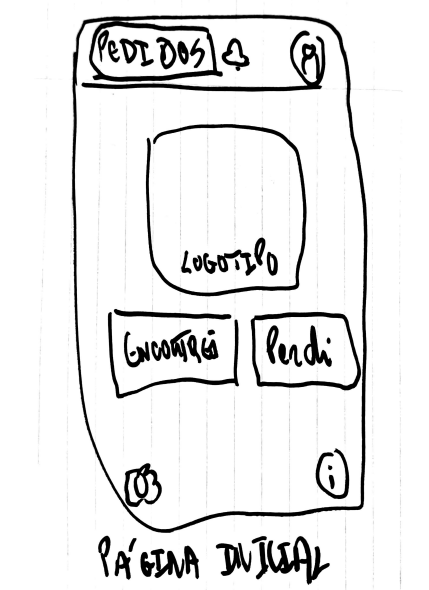 PEDIDOS
LOGOTIPO
ENCONTREI
Perdi
i
PÁGINA INICIAL